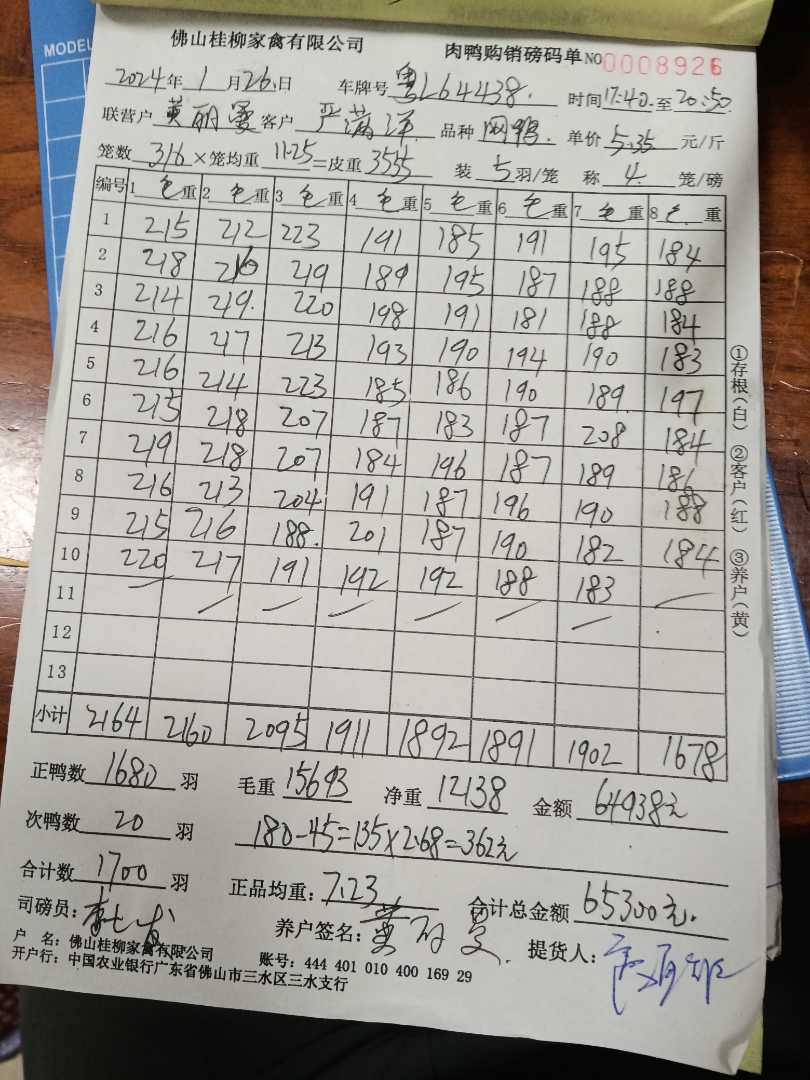 MODEL
佛山桂柳家禽有限公司 肉鸭购销磅码单 NO 0008926
2024年1月26日 车牌号 粤L64438. 时间17:40.至20:50
联营户 黄丽雯 客户 严满洋 品种 网鸭. 单价 5.35 元/斤
笼数 316 ×笼均重 11.25 =皮重 3555 装 5 羽/笼 称 4. 笼/磅
编号 1 毛重 2 毛重 3 毛重 4 毛重 5 毛重 6 毛重 7 毛重 8 毛重
1 215 212 223 191 185 191 195 184
2 218 216 219 189 195 187 188 188
3 214 219. 220 198 191 181 188 184
4 216 217 213 193 190 194 190 183
5 216 214 223 185 186 190 189. 197
6 215 218 207 187 183 187 208 184
7 219 218 207 184 196 187 189 186
8 216 213 204 191 187 196 190 188
9 215 216 188. 201 187 190 182 184
10 220 217 191 192 192 188 183 —
11 — — — — — — —
12
13
小计 2164 2160 2095 1911 1892 1891 1902 1678
正鸭数 1680 羽 毛重 15693 净重 12138 金额 64938元
次鸭数 20 羽 180-45=135×2.68=362元
合计数 1700 羽 正品均重: 7.23 合计总金额 65300元.
司磅员: 养户签名: 黄丽 提货人:
户 名: 佛山桂柳家禽有限公司 账号: 444 401 010 400 169 29
开户行: 中国农业银行广东省佛山市三水区三水支行
①存根(白) ②客户(红) ③养户(黄)